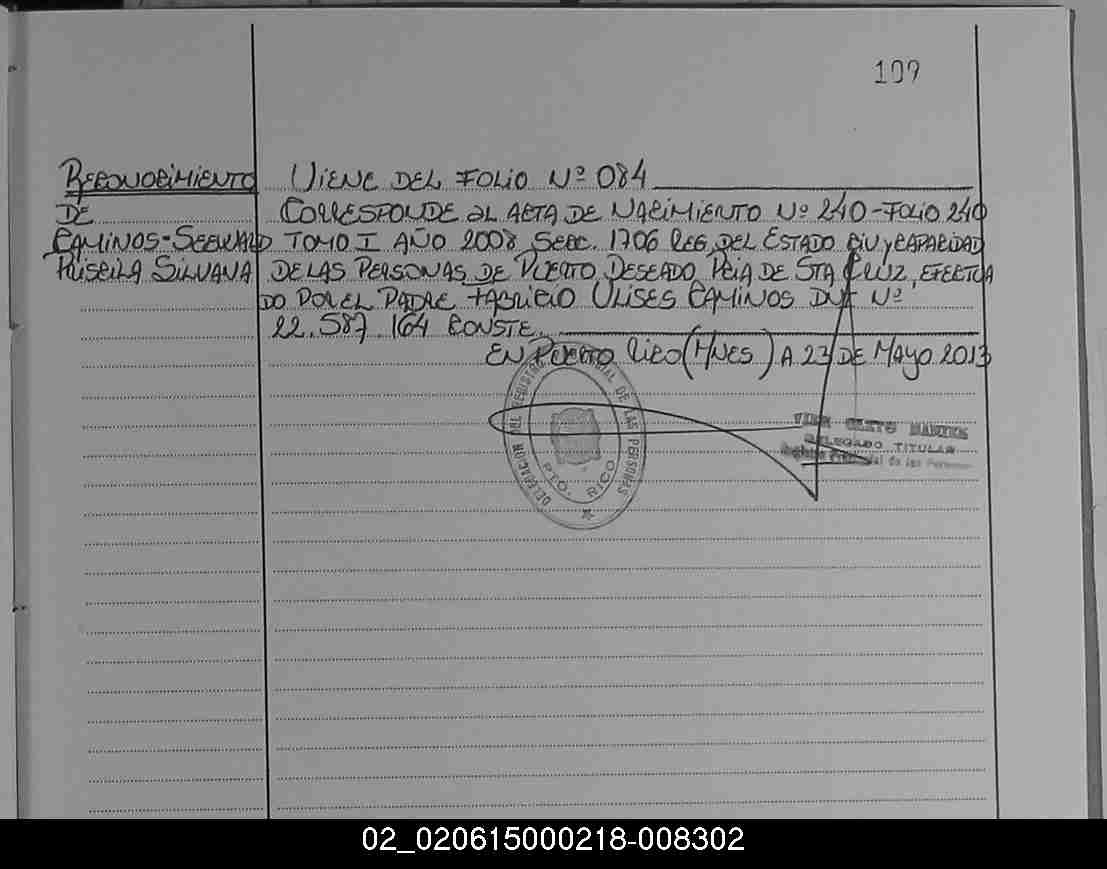 109
RECONOCIMIENTO
DE
CAMINOS-SEEWALD
PRISCILA SILVANA
VIENE DEL FOLIO Nº 084
CORRESPONDE AL ACTA DE NACIMIENTO Nº 240-FOLIO 240
TOMO I AÑO 2008 SECC. 1706 REG. DEL ESTADO CIV y CAPACIDAD
DE LAS PERSONAS DE PUERTO DESEADO PCIA DE STA CRUZ, EFECTUA
DO POR EL PADRE FABRICIO ULISES CAMINOS DNI Nº
22.587.164 CONSTE.
EN PUERTO RICO (MNES) A 23 DE MAYO 2013
DELEGACION DEL REGISTRO PROVINCIAL DE LAS PERSONAS
PTO. RICO
DELEGADO TITULAR
Registro Provincial de las Personas
02_020615000218-008302